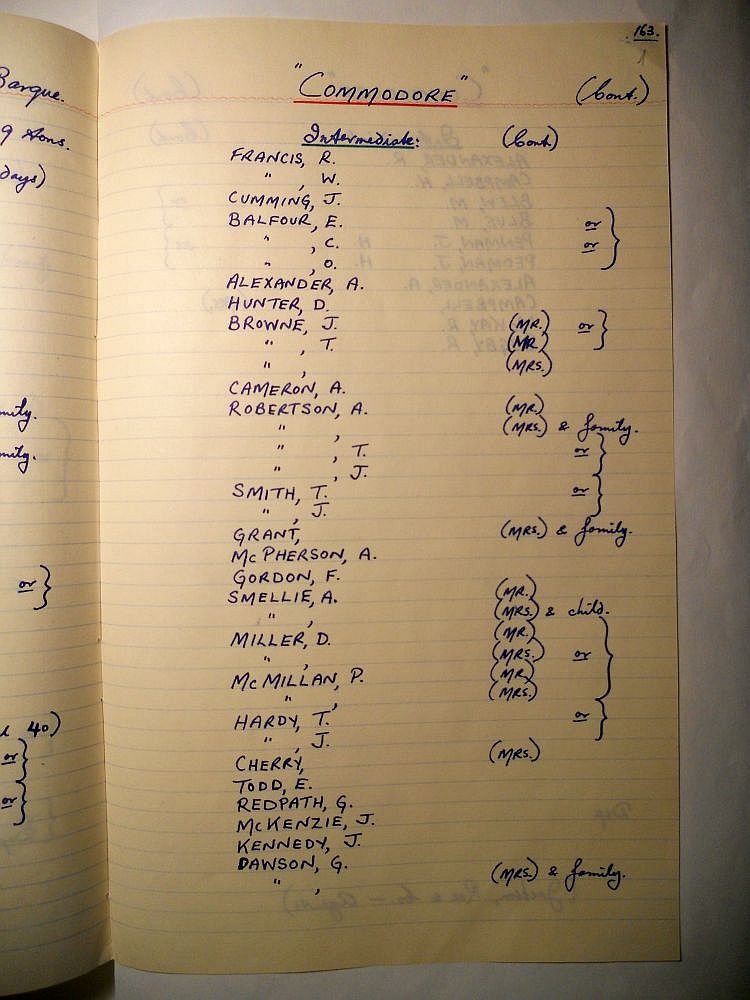 163.
"COMMODORE" (Cont.)
Intermediate: (Cont)
FRANCIS, R.
" , W.
CUMMING, J.
BALFOUR, E. or
" , C. or
" , O.
ALEXANDER, A.
HUNTER, D.
BROWNE, J. (MR.) or
" , T. (MR)
" , (MRS.)
CAMERON, A.
ROBERTSON, A. (MR.)
" , (MRS.) & family.
" , T. or
" , J.
SMITH, T. or
" , J.
GRANT, (MRS.) & family.
McPHERSON, A.
GORDON, F.
SMELLIE, A. (MR.)
" , (MRS.) & child.
MILLER, D. (MR.)
" , (MRS.) or
McMILLAN, P. (MR.)
" , (MRS.)
HARDY, T. or
" , J.
CHERRY, (MRS.)
TODD, E.
REDPATH, G.
McKENZIE, J.
KENNEDY, J.
DAWSON, G.
" , (MRS.) & family.
Barque.
9 tons.
days)
or
40)
or
or